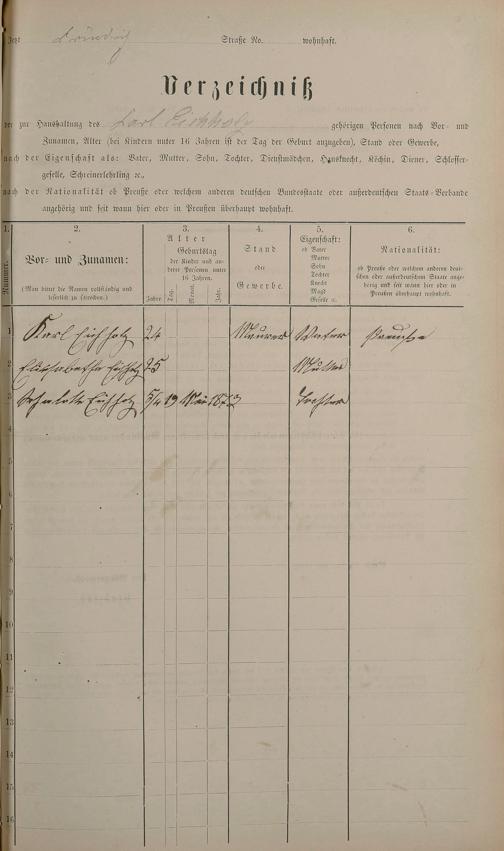 Jetzt Straße No. wohnhaft.
Verzeichniß
der zur Haushaltung des Karl Eichholz gehörigen Personen nach Vor- und
Zunamen, Alter (bei Kindern unter 16 Jahren ist der Tag der Geburt anzugeben), Stand oder Gewerbe,
nach der Eigenschaft als: Vater, Mutter, Sohn, Tochter, Dienstmädchen, Hausknecht, Köchin, Diener, Schlosser-
geselle, Schreinerlehrling ꝛc.,
nach der Nationalität ob Preuße oder welchem anderen deutschen Bundesstaate oder außerdeutschen Staats-Verbande
angehörig und seit wann hier oder in Preußen überhaupt wohnhaft.
1. 2. 3. 4. 5. 6.
Nummer.
Vor- und Zunamen:
(Man bittet die Namen vollständig und
leserlich zu schreiben.)
Alter
Geburtstag
der Kinder und an-
derer Personen unter
16 Jahren.
Jahre Tag. Monat. Jahr.
Stand
oder
Gewerbe.
Eigenschaft:
ob Vater
Mutter
Sohn
Tochter
Köchin
Knecht
Magd
Geselle ꝛc.
Nationalität:
ob Preuße oder welchem anderen deut-
schen oder außerdeutschen Staate ange-
hörig und seit wann hier oder in
Preußen überhaupt wohnhaft.
1 Karl Eichholz 24 Maurer Vater Preuße
2 Elisabetha Eichholz 25 Mutter
3 Eichholz 5/4 19 Mai 1873 Tochter
4
5
6
7
8
9
10
11
12
13
14
15
16